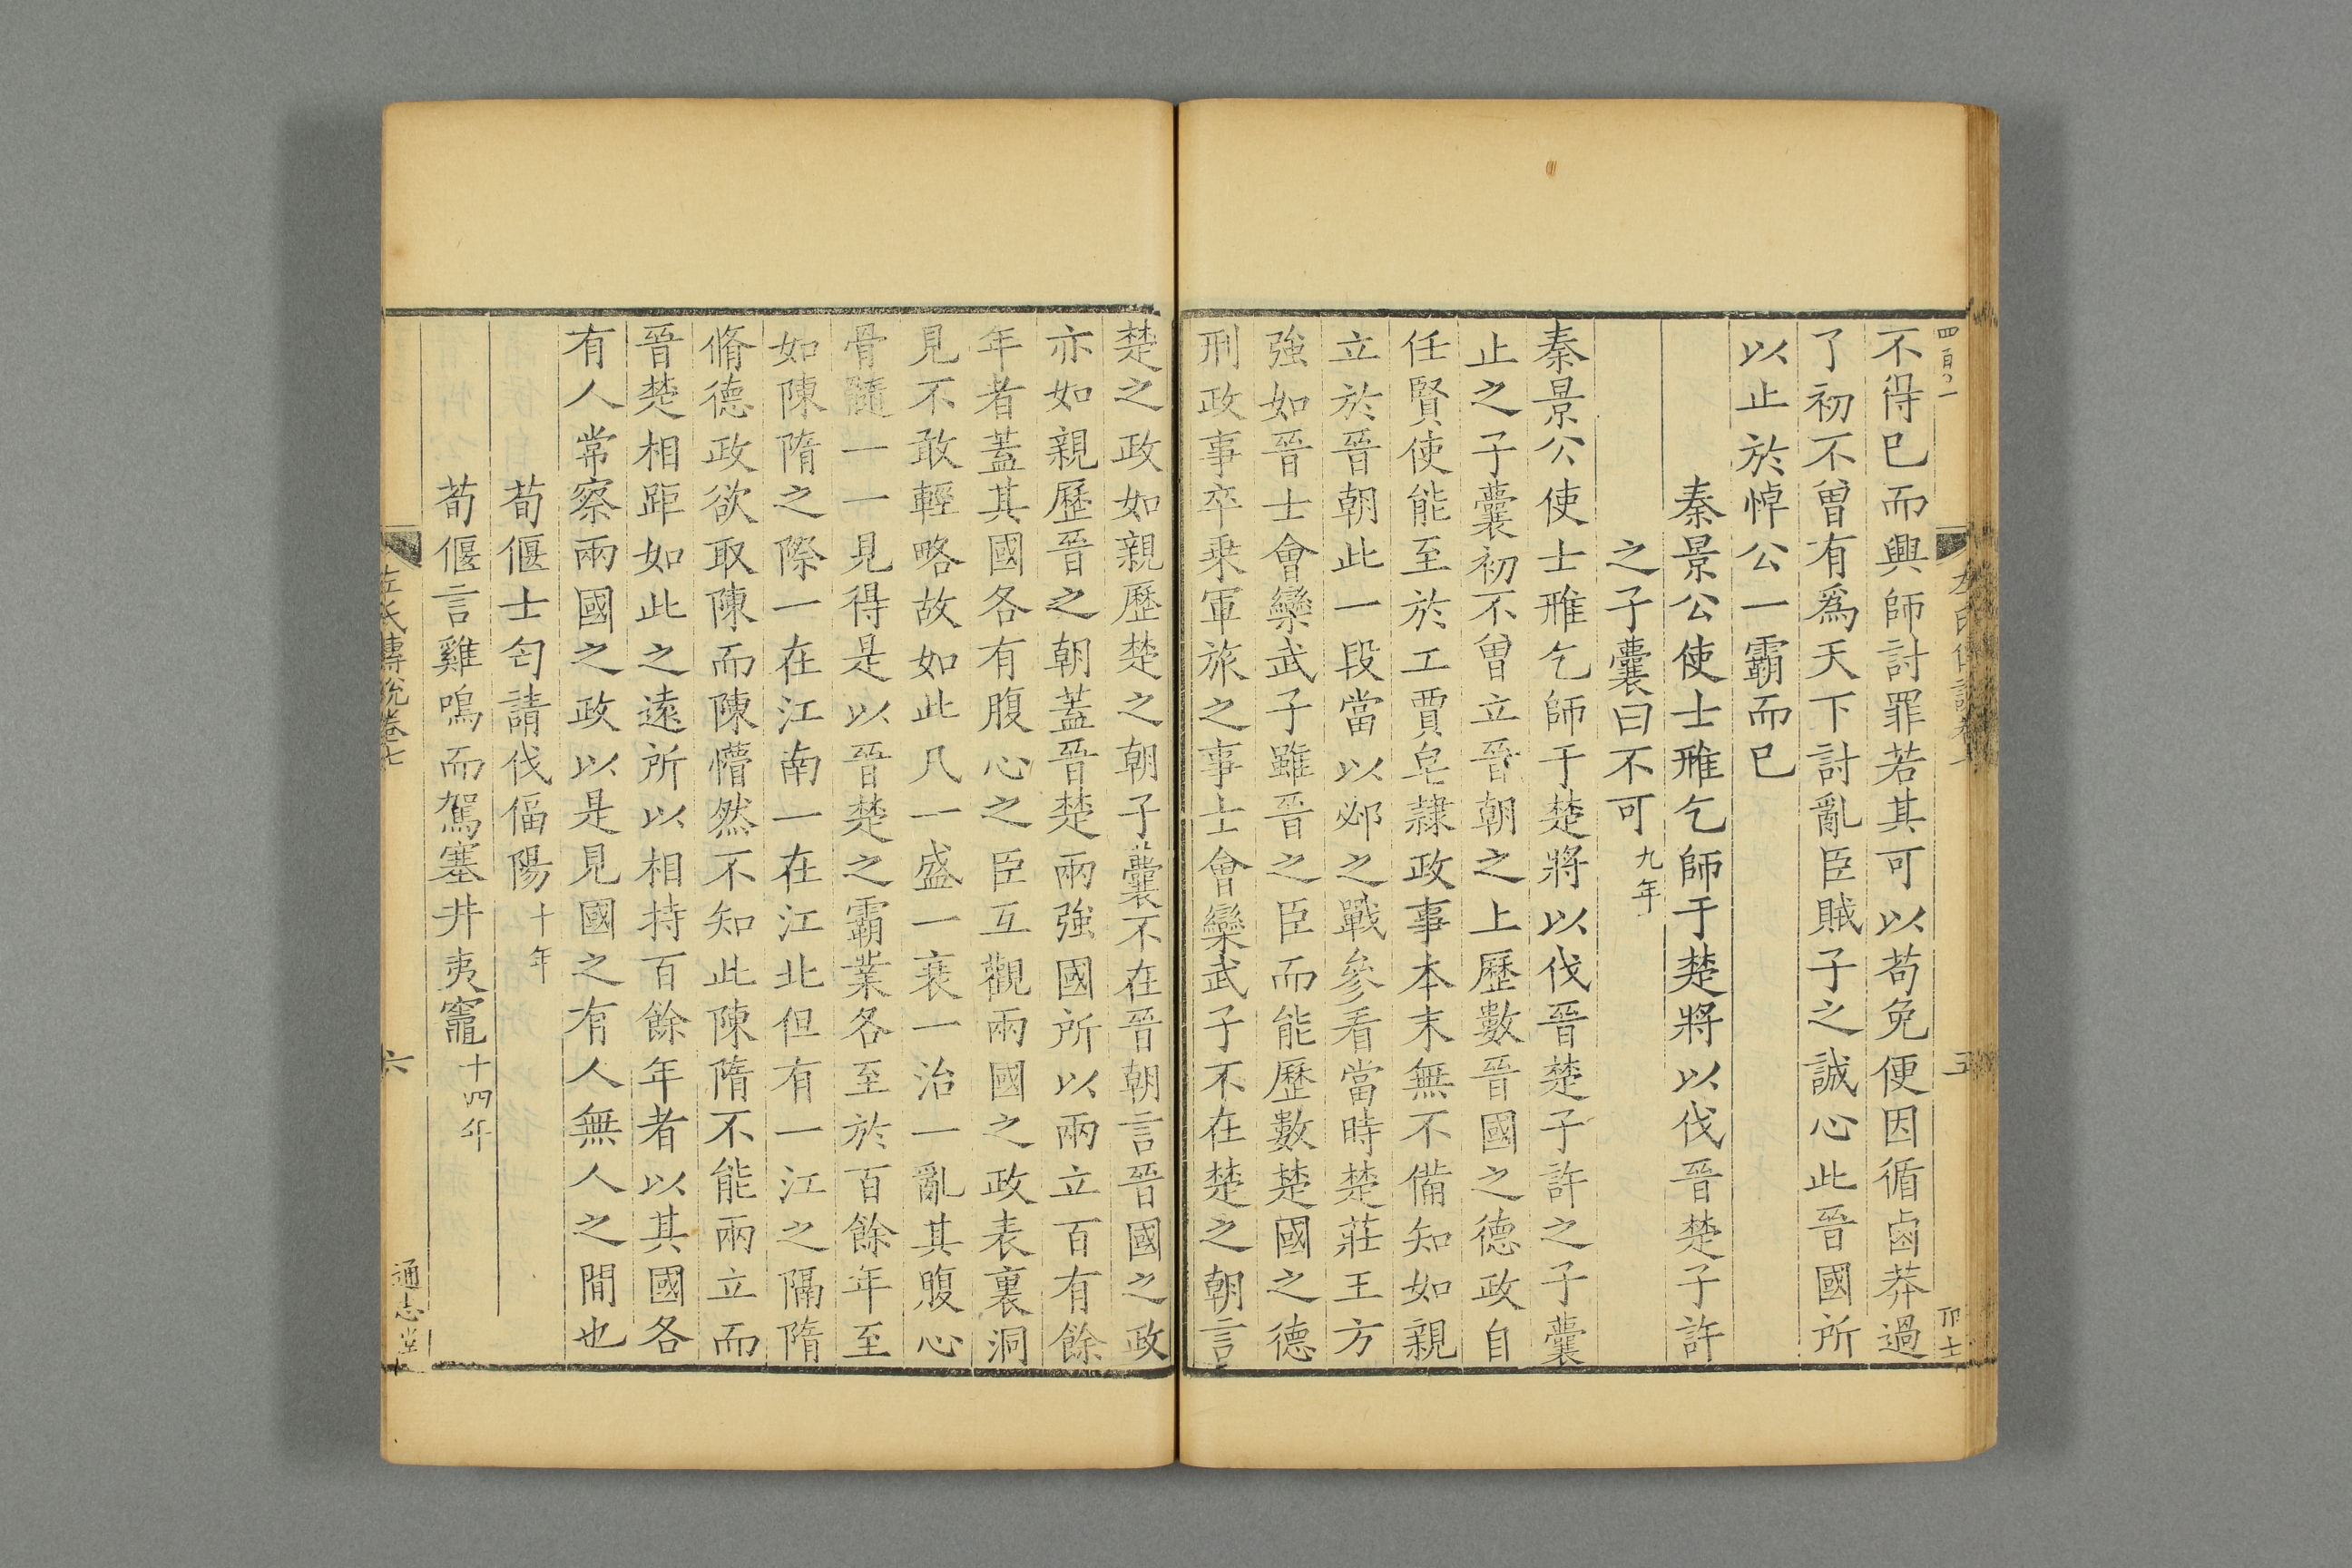 不得已而興師討罪若其可以苟免便因循鹵莽過
了初不曾有爲天下討亂臣賊子之誠心此晉國所
以止於悼公一霸而已
秦景公使士雃乞師于楚將以伐晉楚子許
之子囊曰不可九年
秦景公使士雃乞師于楚將以伐晉楚子許之子囊
止之子囊初不曾立晉朝之上歷數晉國之德政自
任賢使能至於工賈皂隷政事本末無不備知如親
立於晉朝此一段當以邲之戰參看當時楚莊王方
強如晉士會欒武子雖晉之臣而能歷數楚國之德
刑政事卒乗軍旅之事士會欒武子不在楚之朝言
楚之政如親歷楚之朝子囊不在晉朝言晉國之政
亦如親歷晉之朝蓋晉楚兩強國所以兩立百有餘
年者蓋其國各有腹心之臣互觀兩國之政表裏洞
見不敢輕略故如此凡一盛一衰一治一亂其腹心
骨髓一一見得是以晉楚之霸業各至於百餘年至
如陳隋之際一在江南一在江北但有一江之隔隋
脩德政欲取陳而陳懵然不知此陳隋不能兩立而
晉楚相距如此之遠所以相持百餘年者以其國各
有人常察兩國之政以是見國之有人無人之間也
荀偃士匄請伐偪陽十年
荀偃言雞鳴而駕塞井夷竈十四年
左氏傳說卷七
六
通志堂